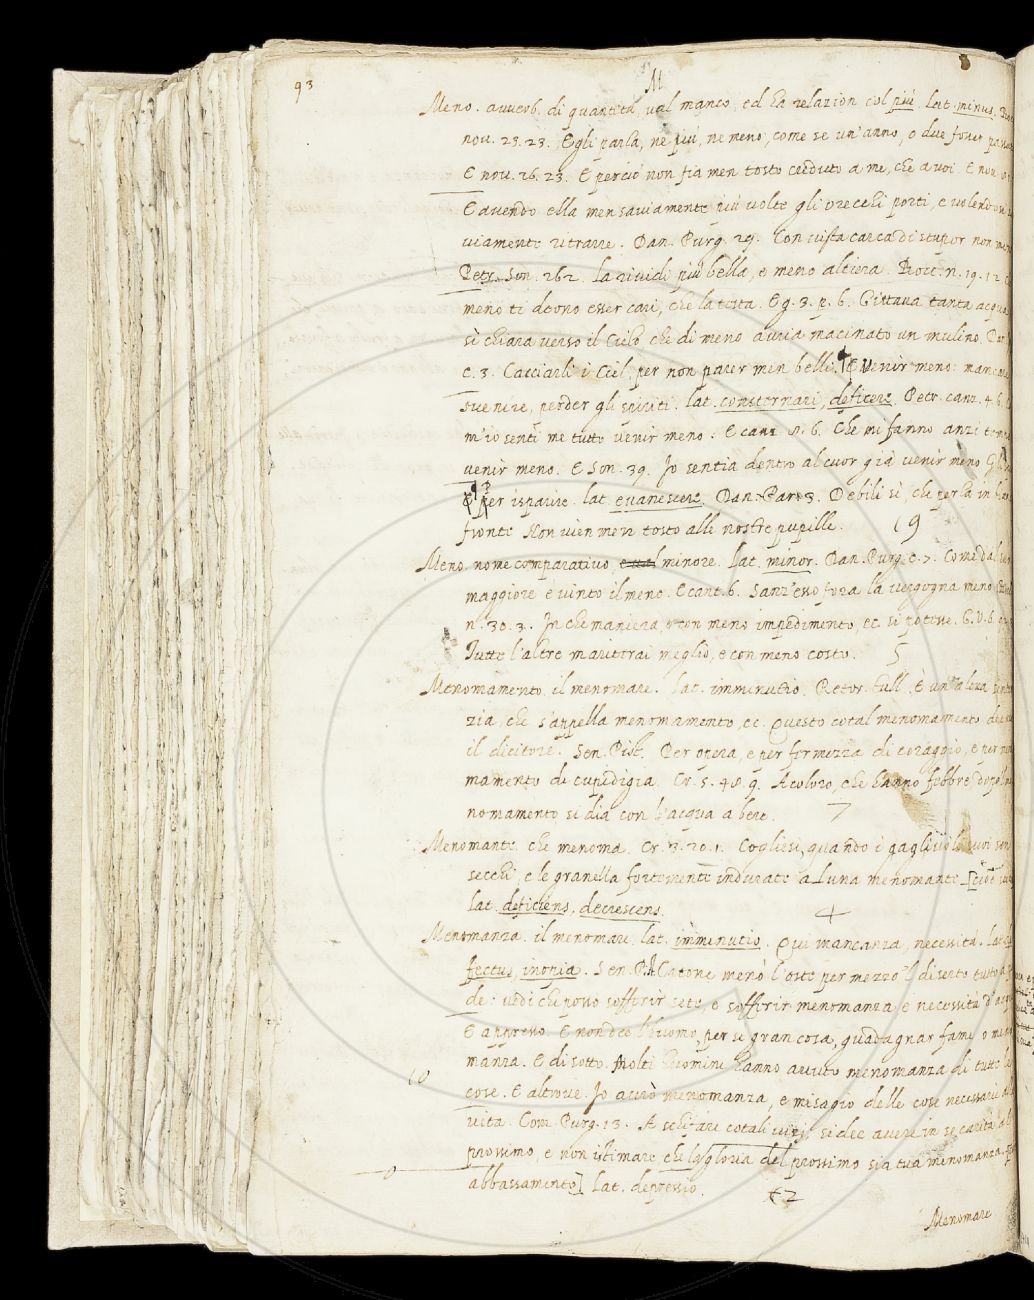 93
M
Meno. avverb. di quantità, val manco, ed ha relazion col più. Lat. minus.
nov. 23. 23. Egli parla, nè più, ne meno, come se un'anno, o due fosser
E nov. 26. 23. E perciò non fia men tosto creduto a me, che a voi. E nov.
E avendo ella men saviamente più volte gli orecchi porti, e volendosi
viamente ritrarre. Dan. Purg. 29. Con vista carca di stupor non meno
Petr. Son. 262. La rividi più bella, e meno altiera. Bocc. n. 19. 12
meno ti deono esser cari, che la testa. E g. 3. p. 6. Gittava tanta acqua
sì chiara verso il Cielo che di meno avria macinato un mulino.
c. 3. Cacciarli i Ciel per non parer men belli. E Venir meno: mancare
svenire, perder gli spiriti. lat. consternari, deficere. Petr. canz. 4. 6.
m'io senti me tutto venir meno. E canz. 8. 6. Che mi fanno anzi
venir meno. E Son. 39. Io sentia dentro al cuor già venir meno
E per isparire. lat. evanescere. Dan. Par. 3. Debili sì, che perla in
fronte Non vien men tosto alle nostre pupille. 19
Meno. nome comparativo minore. lat. minor. Dan. Purg. c. 7. Come dal
maggiore è vinto il meno. E cant. 6. Sanz'esso fora la vergogna meno
n. 30. 3. In che maniera, e con meno impedimento, ec. si potesse. G. V. 6.
Tutte l'altre manterrai meglio, e con meno costo. 5
Menomamento. il menomare. Lat. imminutio. Retor. Tull. È un'altra
zia, che s'appella menomamento, ec. Questo cotal menomamento
il dicitore. Sen. Pist. Per opera, e per fermezza di coraggio, e per
mamento di cupidigia. Cr. 5. 48. 9. A coloro, che hanno febbre dopo
nomamento si dia con l'acqua a bere. 7
Menomante. che menoma. Cr. 3. 20. 1. Cogliesi, quando i
secchi, e le granella fortemente indurate a Luna menomante
lat. deficiens, decrescens. 4
Menomanza. il menomare, lat. imminutio. Qui mancanza, necessità. Lat.
fectus, inopia. Sen. P. Catone menò l'oste per mezzo 'l diserto
de: vedi che posso sofferir sete, e sofferir menomanza, e necessità
E appresso. E non dee l'huomo, per se gran cosa, guadagnar fame o
manza. E di sotto. Molti Huomini hanno avuto menomanza di tutte
10
cose. E altrove. Io avrò menomanza, e misagio delle cose necessarie
vita. Com. Purg. 13. A schifare cotali vizi, si dee avere in se carità
prossimo, e non istimare che la gloria del prossimo sia tua menomanza.
abbassamento] Lat. depressio. 12
Menomare